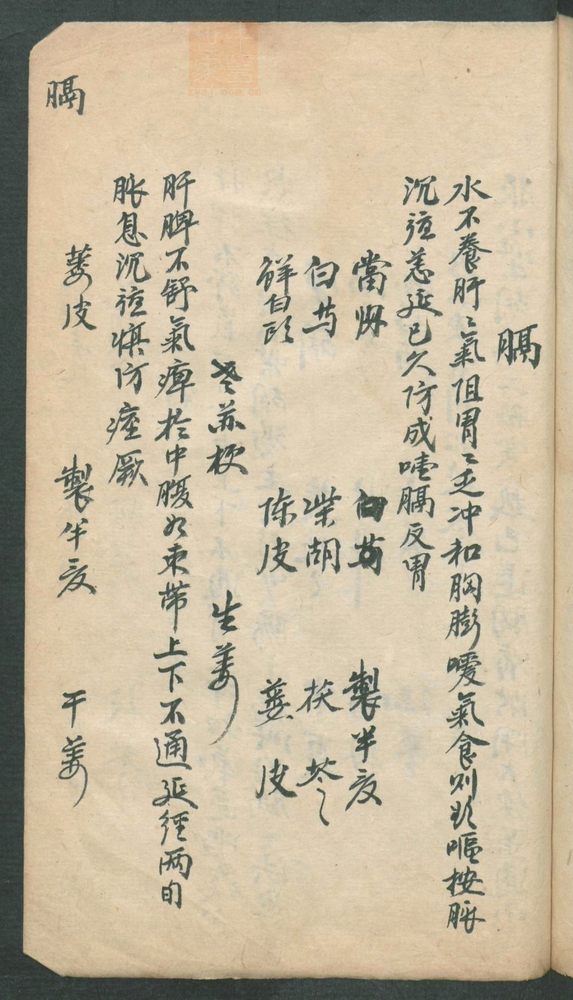 膈
水不養肝肝氣阻胃胃乏冲和胸膨噯氣食則欲嘔按脉
沉弦恙延已久防成噎膈反胃
當歸 白芍 製半夏
白芍 柴胡 茯苓
鮮白頭 陈皮 蒌皮
老苏梗 生姜
肝脾不舒氣痺於中腹如束帶上下不通延徑兩旬
脉息沉弦慎防痙厥
蒌皮 製半夏 干姜
膈